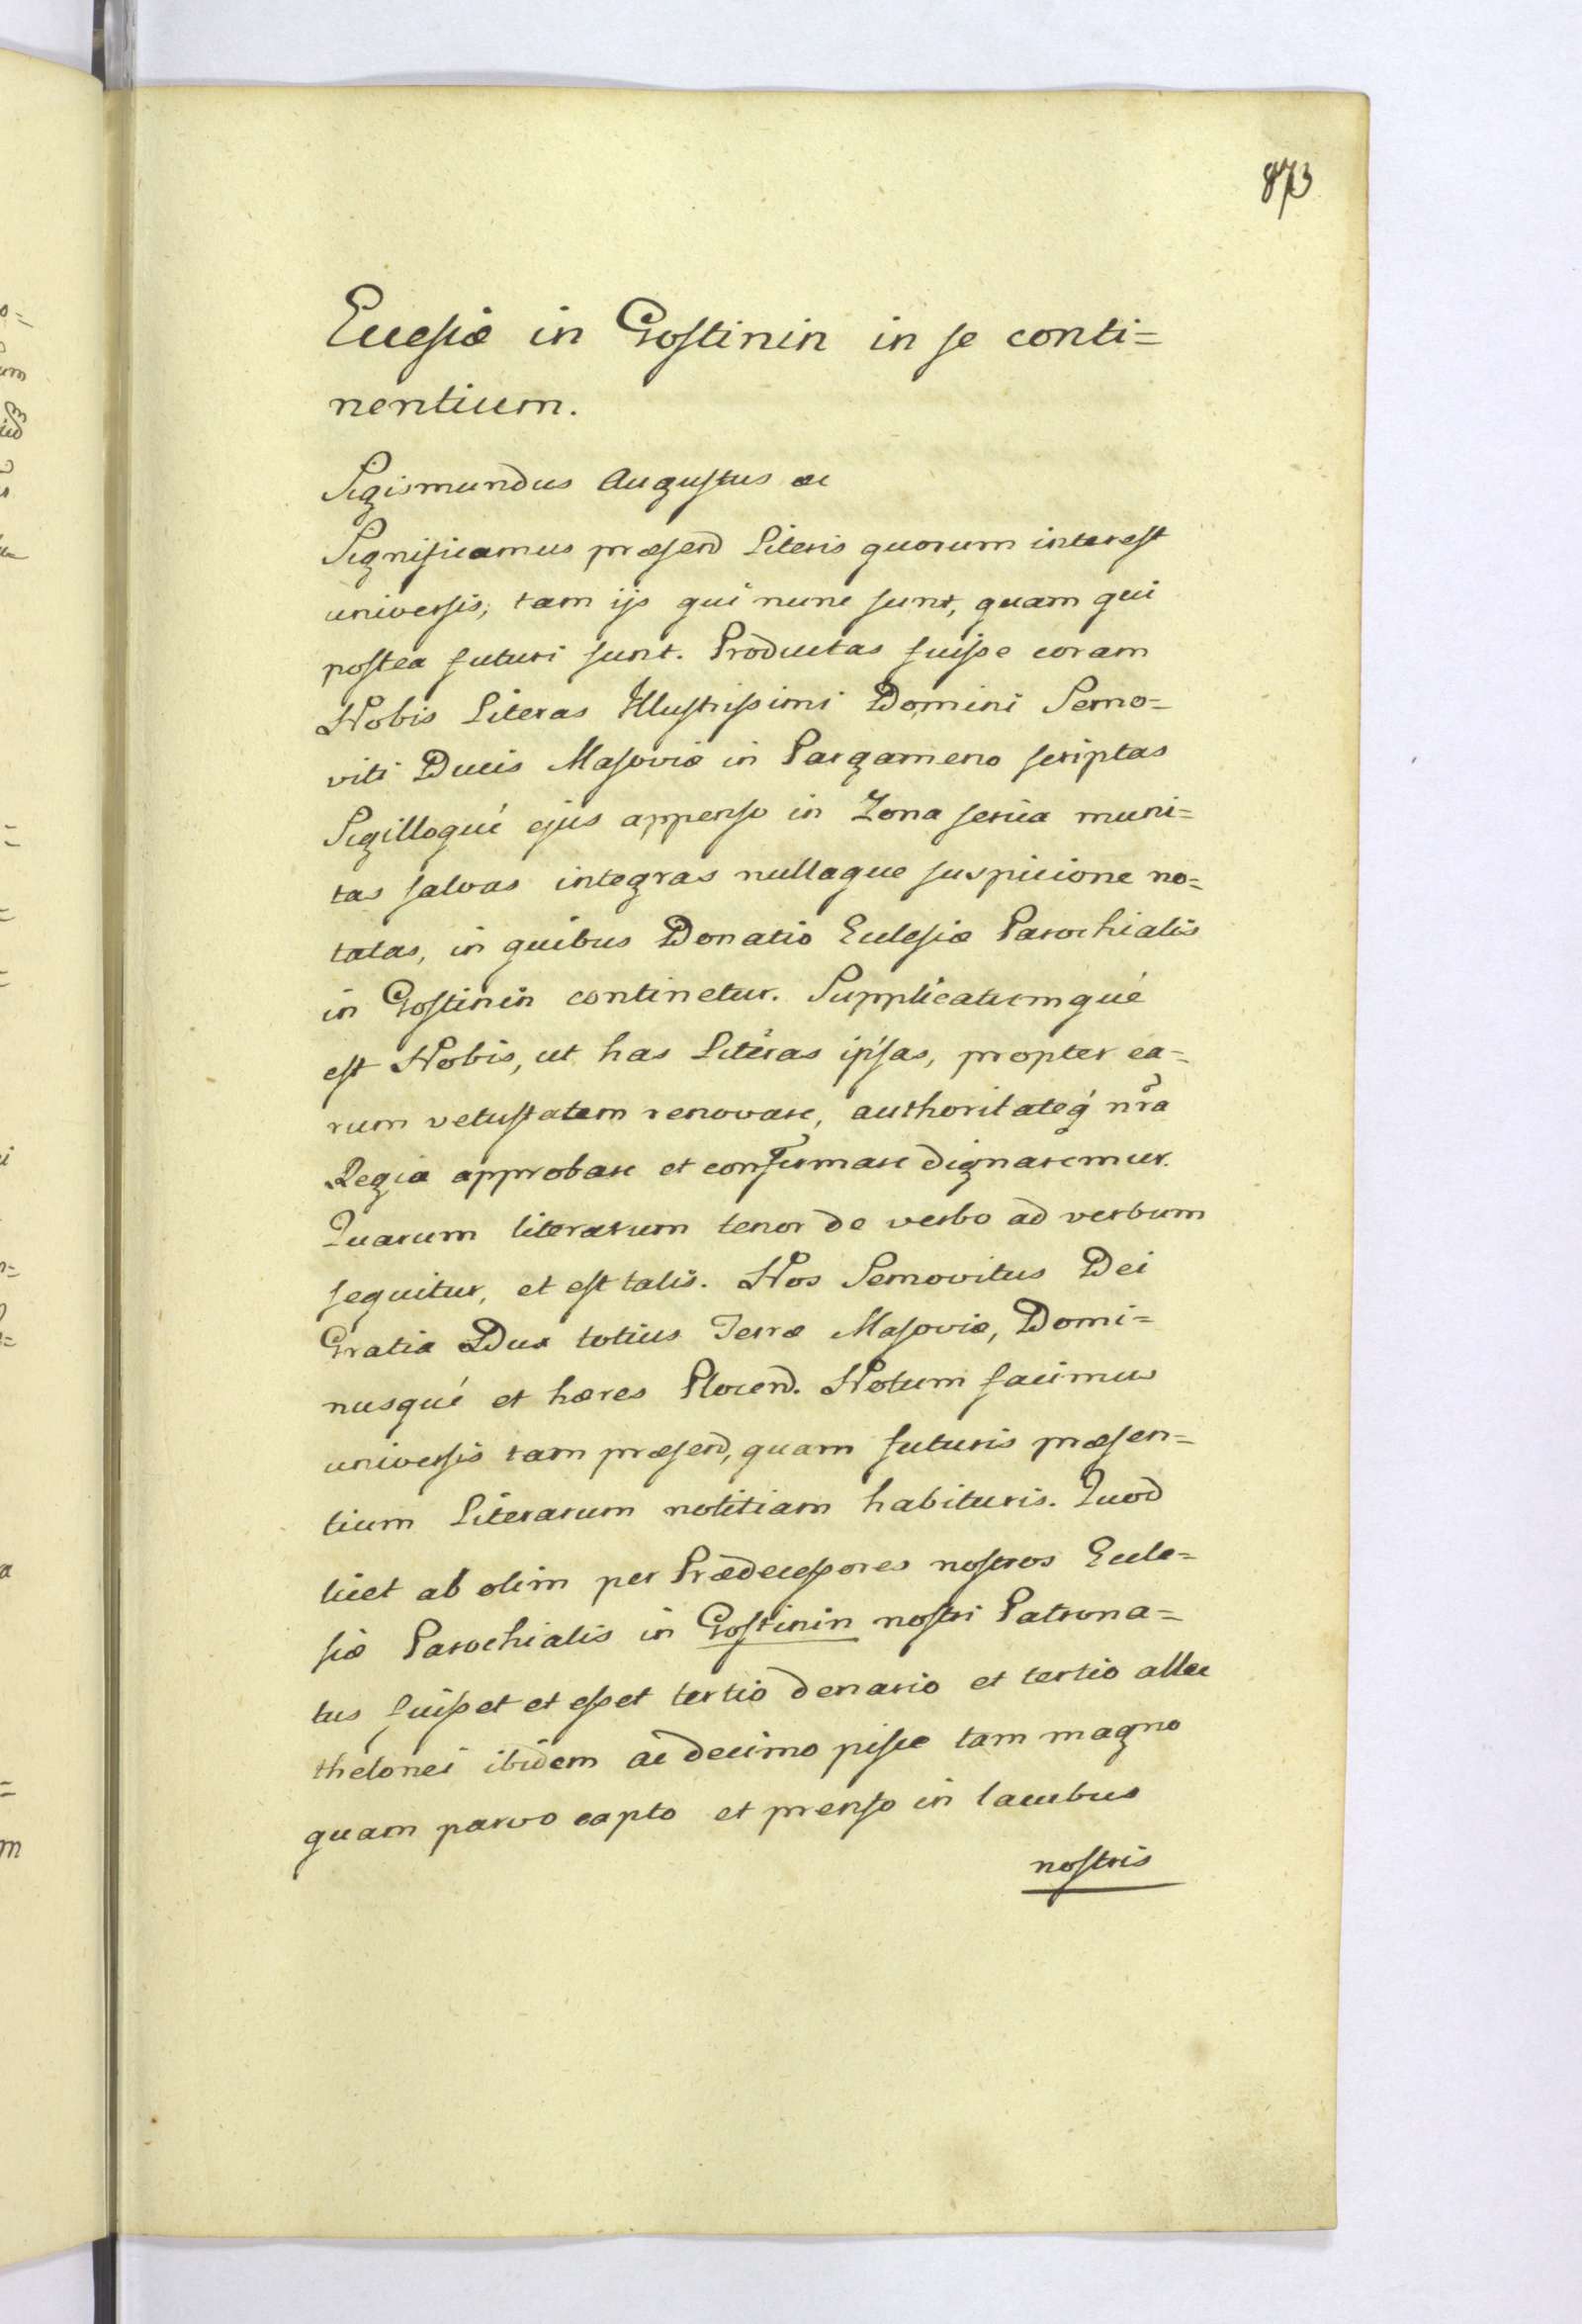 873
Ecclesiæ in Gostinin in se conti=
nentium.
Sigismundus Augustus &c
Significamus præsend Literis quorum interest
universis, tam ijs qui nunc sunt, quam qui
postea futuri sunt. Productas fuisse coram
Nobis Literas Illustrissimi Domini Semo=
viti Ducis Masoviæ in Pargameno scriptas
Sigilloqué ejus appenso in Zona serica muni=
tas salvas integras nullaque suspicione no=
tatas, in quibus Donatio Eclesiæ Parochialis
in Gostinin continetur. Supplicatumqué
est Nobis, ut has Literas ipsas, propter ea=
rum vetustatem renovare, authoritateq́ nra
Regia approbare et confirmare dignaremur.
Quarum literarum tenor de verbo ad verbum
sequitur, et est talis. Nos Semovitus Dei
Gratia Dux totius Terræ Masoviæ, Domi=
nusqué et hæres Plocend. Notum facimus
universis tam præsend, quam futuris præsen=
tium Literarum notitiam habituris. Quod
licet ab olim per Prædecessores nostros Ecle=
siæ Parochialis in Gostinin nostri Patrona=
tus fuisset et esset tertio denario et tertio allec
thelonei ibidem ac decimo pisce tam magno
quam parvo capto et prenso in lacubus
nostris